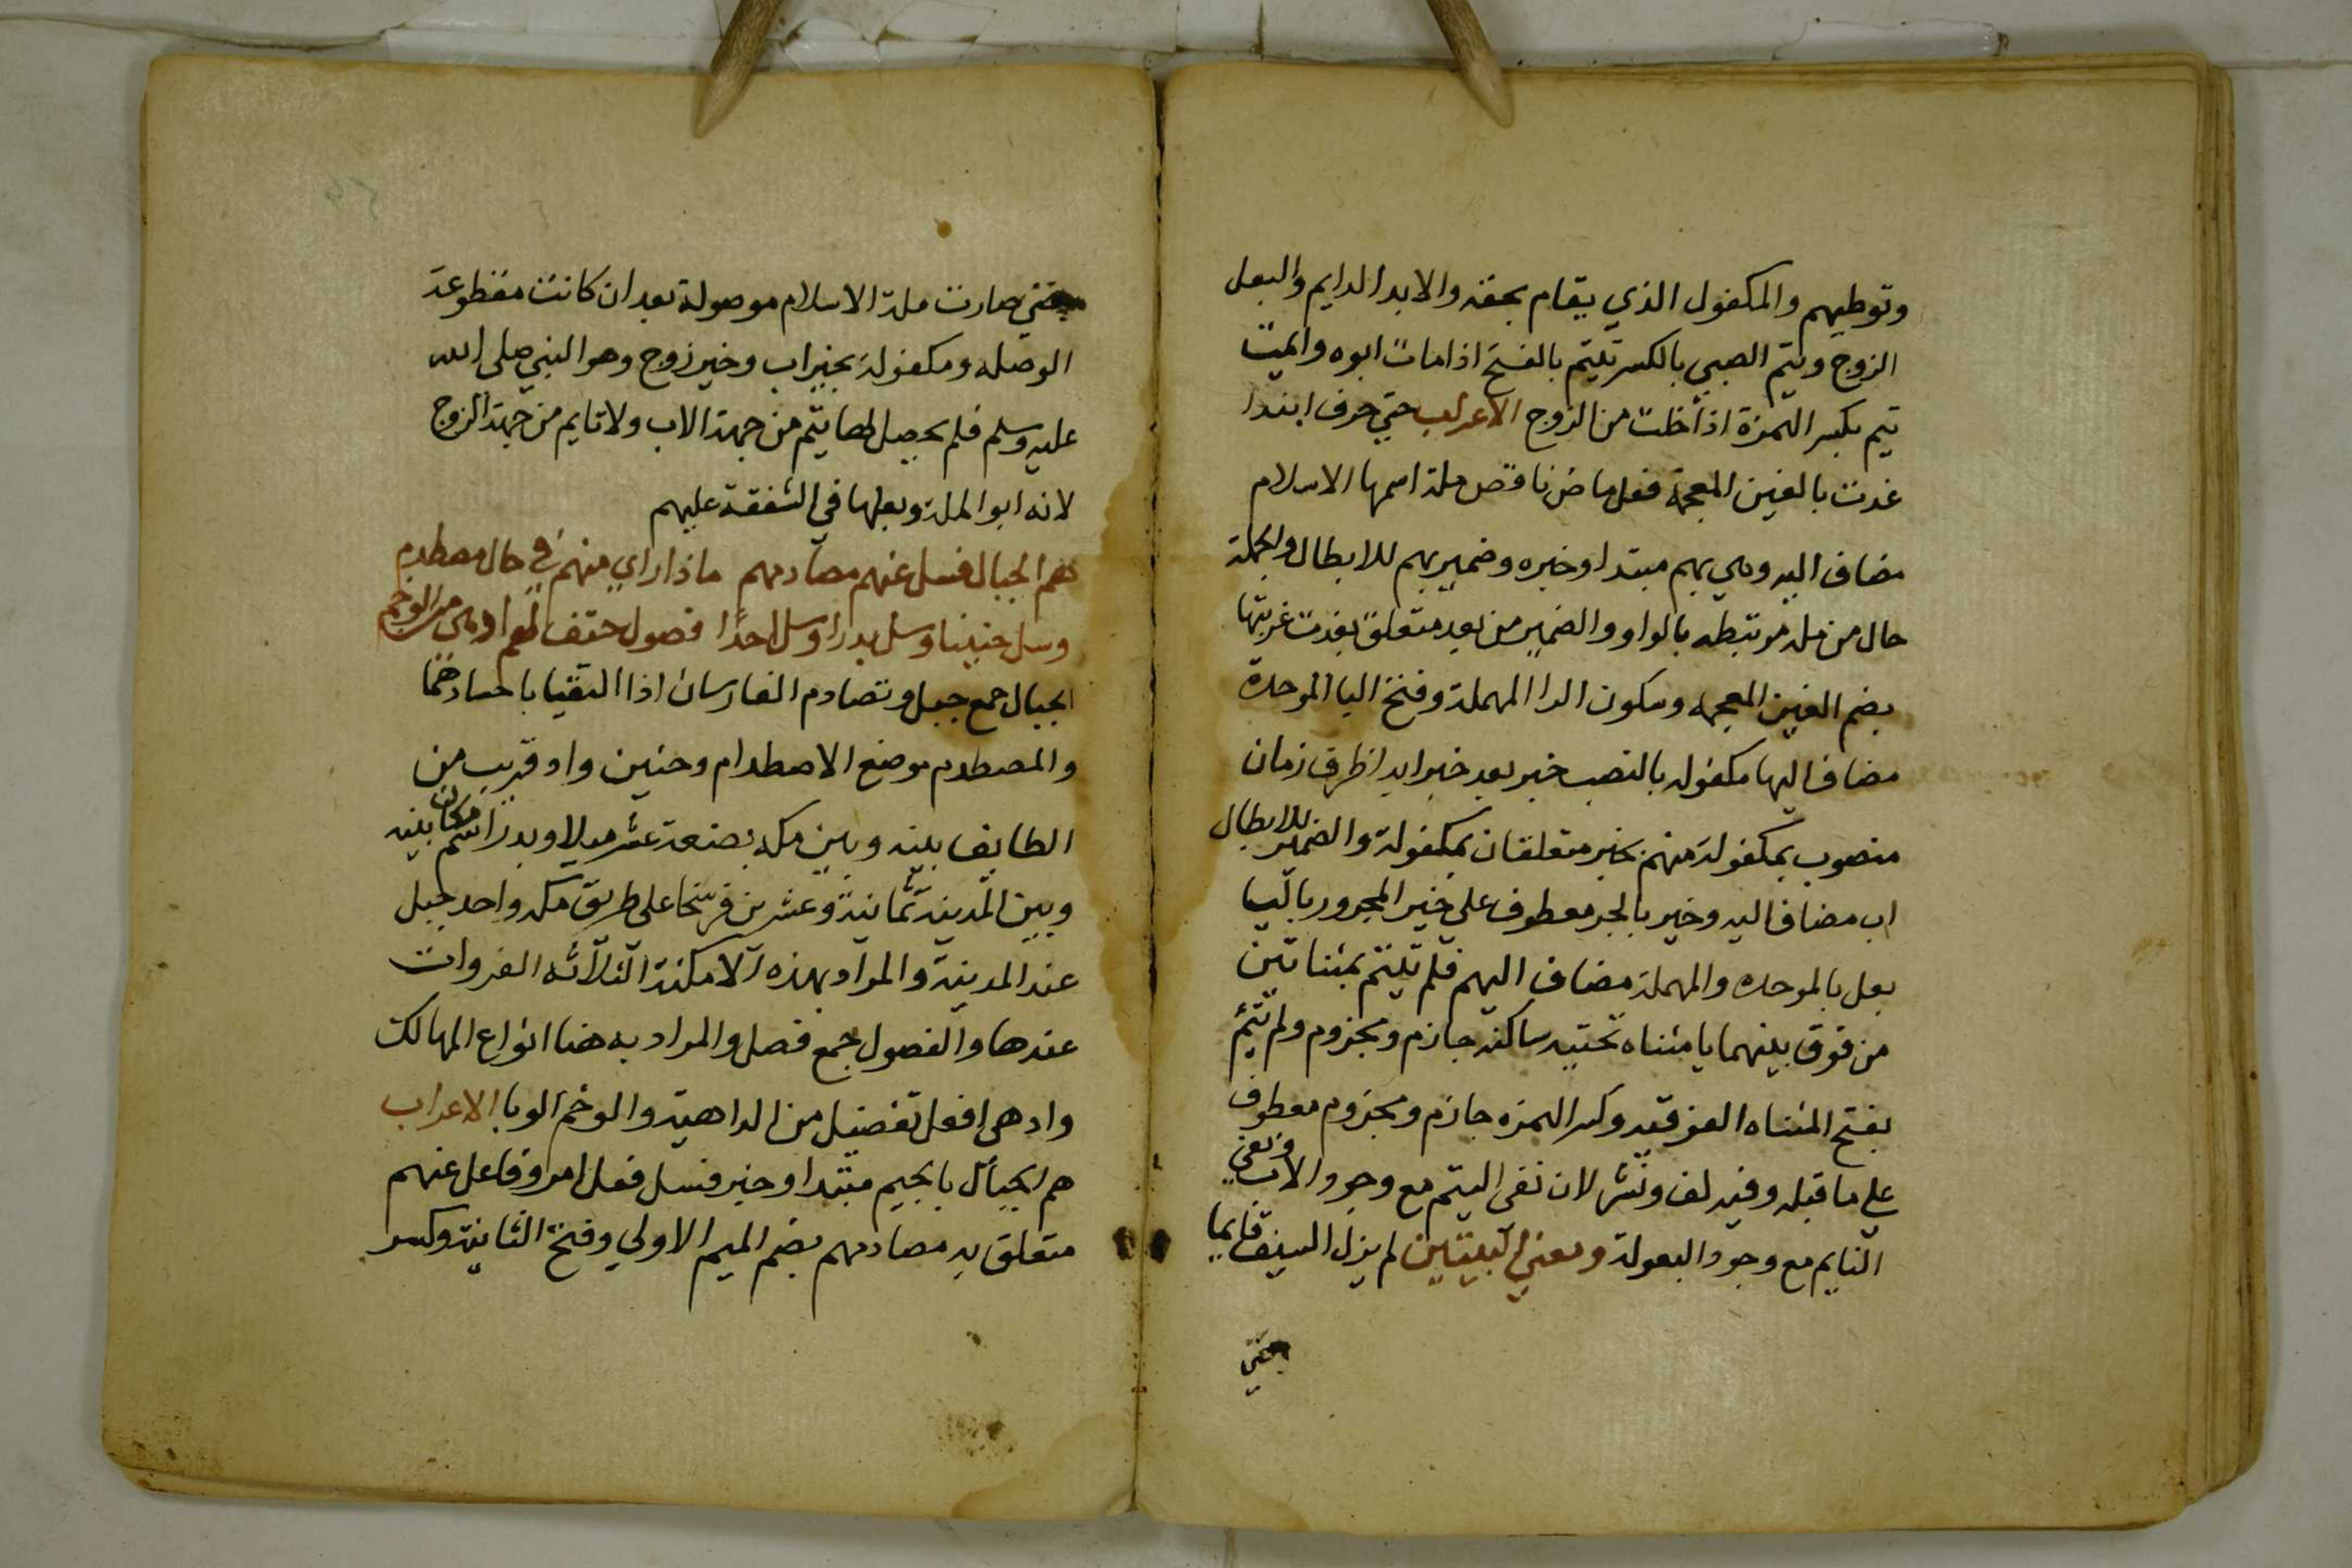 وتوطيهم والمكفول الذي يقام بحقه والابد الدايم والبعل
الزوج ويتم الصبي بالكسر ييتم بالفتح اذا مات ابوه وايمت
تيم بكسر الهمزة اذا خلت من الزوج الاعراب حتي حرف ابتدا
غدت بالغين المعجمة فعل ماض ناقص ملة اسمها الاسلام
مضاف اليه وهي بهم مبتدا وخبره وضمير بهم للابطال والجملة
حال من ملة مرتبطه بالواو والضمير من بعد متعلق بغدت غربتها
بضم الغين المعجمه وسكون الرا المهملة وفتح البا الموحدة
مضاف اليها مكفوله بالنصب خبر بعد خبر ابدا ظرف زمان
منصوب بمكفولة منهم بخير متعلقان بمكفولة والضمير للابطال
اب مضاف اليه وخير بالجر معطوف علي خير المجرور بالبا
بعل بالموحده والمهملة مضاف اليهم فلم ييتم بمثناتين
من فوق بينهما يا مثناه تحتيه ساكنه جازم ومجزوم ولم تئم
بفتح المثناه الفوقيه وكسر الهمزه جازم ومجزوم معطوف
علي ما قبله وفيه لف ونشر لان نفى اليتم مع وجود الاب ونفي
التايم مع وجود البعولة ومعني البيتين لم يزل السيف قايما
حتي
حتي صارت ملة الاسلام موصولة بعد ان كانت مقطوعة
الوصله ومكفولة بخير اب وخير زوج وهو النبي صلى الله
عليه وسلم فلم يحصل لها يتم من جهة الاب ولا تايم من جهة الزوج
لانه ابو الملة وبعلها في الشفقة عليهم
هم الجبال فسل عنهم مصادمهم ماذا راي منهم في حال مصطدم
وسل حنينا وسل بدرا وسل احدا فصول حتف لهم ادهى من الوخم
الجبال جمع جبل وتصادم الفارسان اذا التقيا باجسادهما
والمصطدم موضع الاصطدام وحنين واد قريب من
الطايف بينه وبين مكه بضعة عشر ميلا وبدرا اسم مكان بينه
وبين المدينة ثمانية وعشرين فرسخا على طريق مكه واحد جبل
عند المدينة والمراد بهذه الامكنة الثلاثه الغزوات
عندها والفصول جمع فصل والمراد به هنا انواع المهالك
وادهى افعل تفضيل من الداهية والوخم الوبا الاعراب
هم الجبال بالجيم مبتدا وخبر فسل فعل امر وفاعل عنهم
متعلق به مصادمهم بضم الميم الاولي وفتح الثانية وكسر